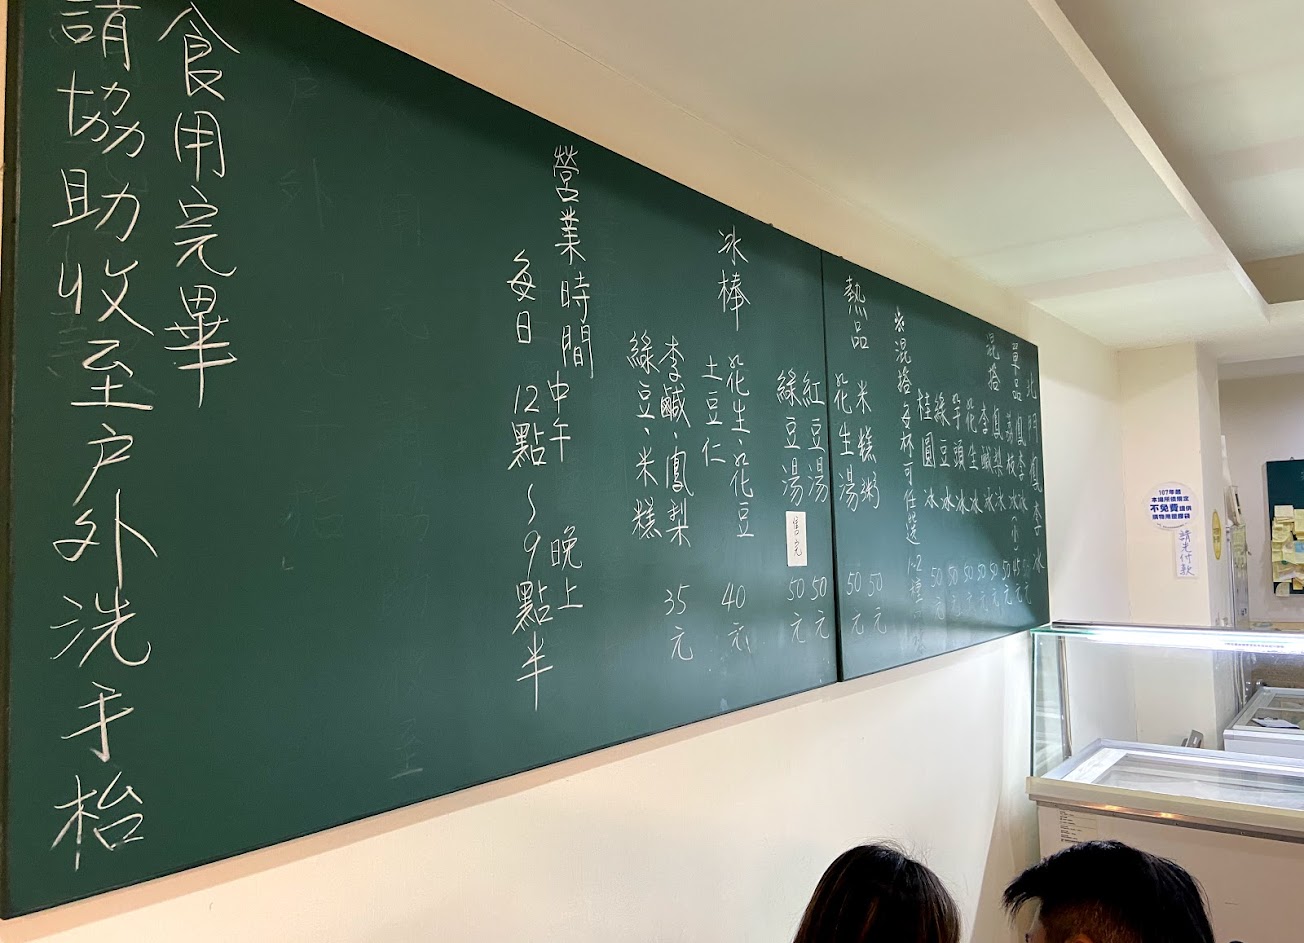 北門鳳李冰
單品 鳳李冰(小) 45元
荔枝冰 50元
混搭 鳳梨冰 50元
李鹹冰 50元
花生冰 50元
芋頭冰 50元
綠豆冰 50元
桂圓冰 50元
※混搭每杯可任選1~2種
熱品 米糕粥 50元
花生湯 50元
紅豆湯 50元
綠豆湯 售完 50元
冰棒 花生、花豆 40元
土豆仁
李鹹、鳳梨 35元
綠豆、米糕
營業時間 中午 晚上
每日 12點~9點半
食用完畢
請協助收至戶外洗手枱
107年起
本場所依規定
不免費提供
購物用塑膠袋
請先付款